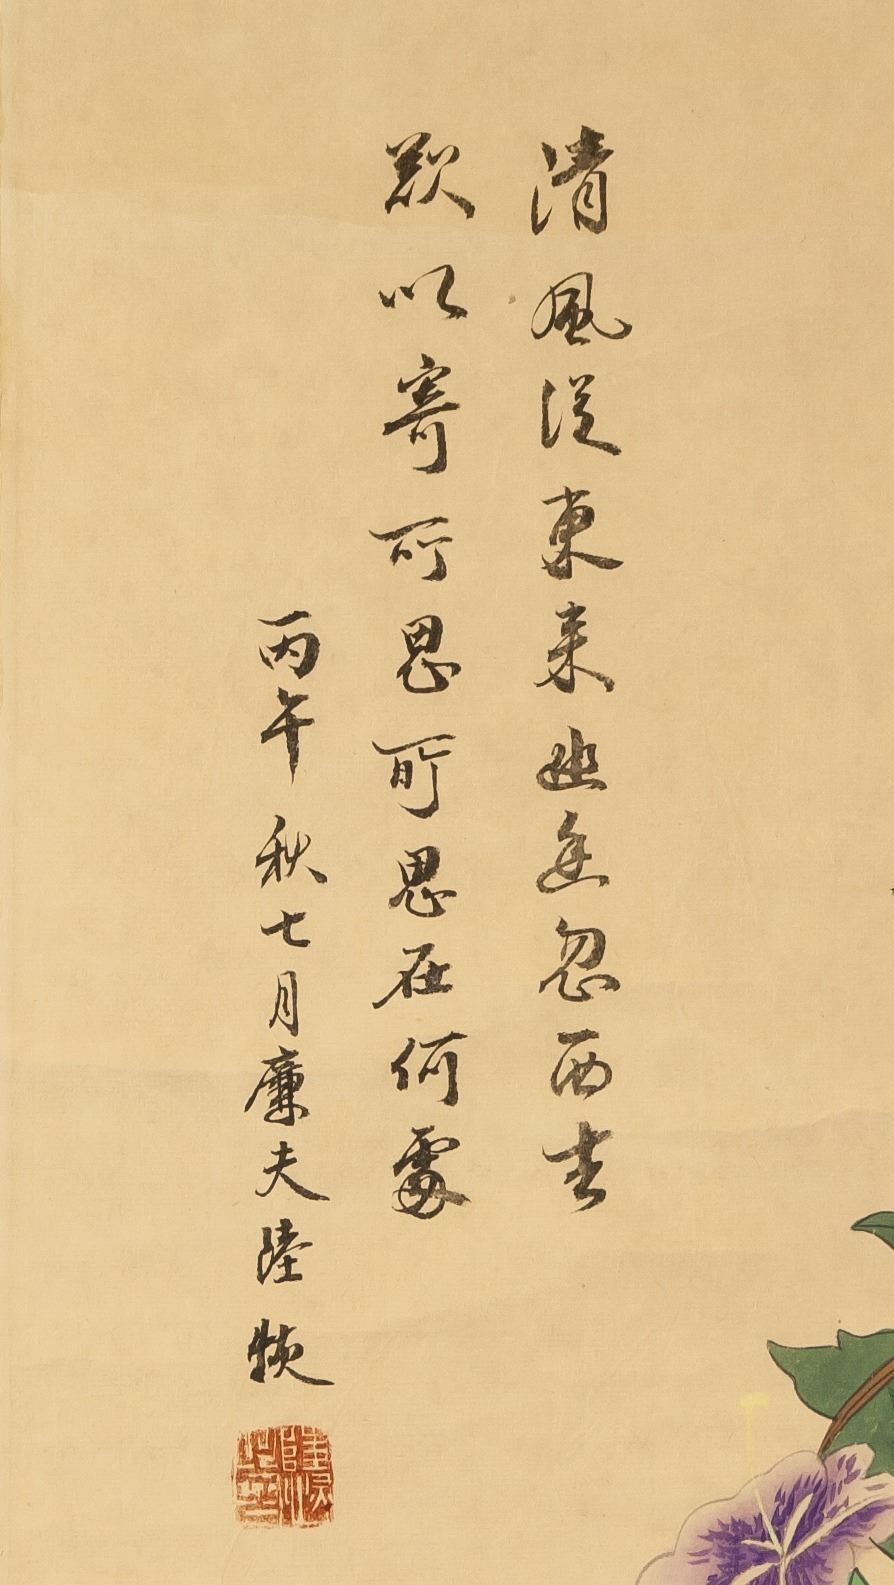 清風從東来忽西去
欲以寄所思所思在何處
丙午秋七月廉夫陸恢